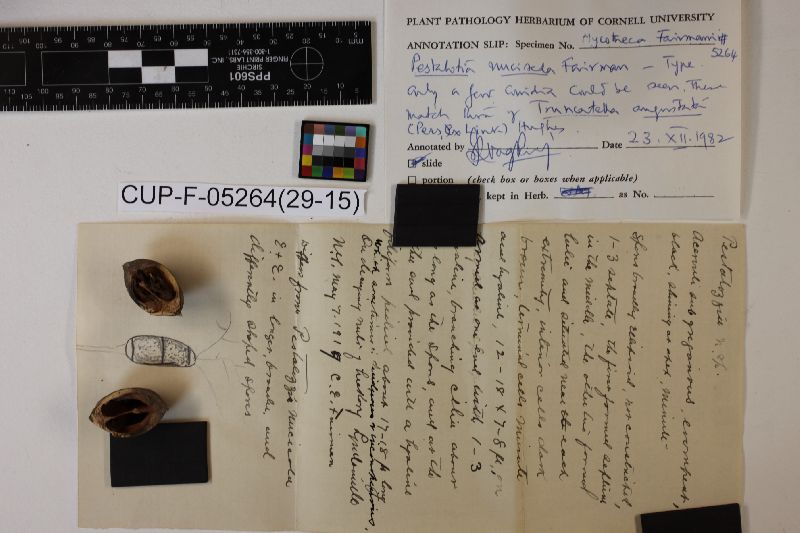 PLANT PATHOLOGY HERBARIUM OF CORNELL UNIVERSITY
ANNOTATION SLIP: Specimen No. Mycotheca Fairmani #
5264
Pestalotia nucicola Fairman — Type.
only a few conidia could be seen. These
match those of Truncatella angustata
(Pers. ex Link) Hughes.
Annotated by Date 23.XII.1982
slide
portion (check box or boxes when applicable)
kept in Herb. as No.
SIRCHIE
FINGER PRINT LABS, INC
1-800-356-7311
PPS601
mm
CUP-F-05264(29-15)
Pestalozzia n. sp.
Acervuli subgregarious, erumpent,
black, shining at apex, minute.
Spores broadly, constricted,
1-3 septate, the first formed septum
in the middle, the others formed
later and situated near each
extremity, interior cells dark
brown, terminal cells minute
and hyaline, 12-18 x 7-8 μ, on
at one end with 1-3
hyaline, branching cilia about
as long as the spore, and at the
other end provided with a hyaline
filiform pedicel about 17-18 μ long
On decaying nuts of hickory, Lyndonville
N.Y. May 7. 1919 C. E. Fairman
differs from Pestalozzia nucicola
E + E. in longer, broader, and
differently shaped spores